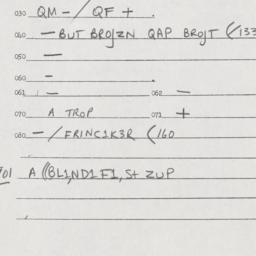 030 QM - / QF +
040 - BUT BROJZN QAP BROJT (/133
050 -
060 -
061 - 062 -
070 A TROP 071 +
080 - / FRINC1K3R (/160
901 A ((BL1,ND1F1,S+ ZUP